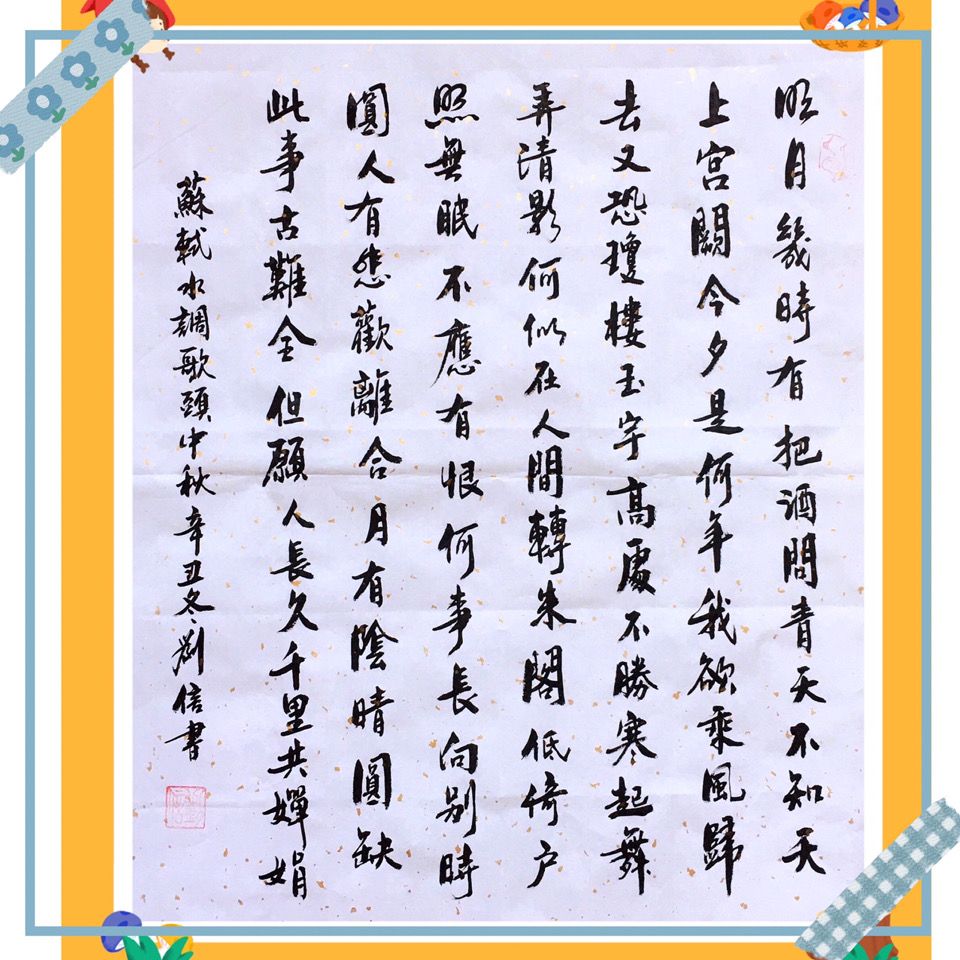 明月幾時有把酒問青天不知天
上宮闕今夕是何年我欲乘風歸
去又恐瓊樓玉宇高處不勝寒起舞
弄清影何似在人間轉朱閣低倚户
照無眠不應有恨何事長向别時
圓人有悲歡離合月有陰晴圓缺
此事古難全但願人長久千里共嬋娟
蘇軾水調歌頭中秋辛丑冬劉信書